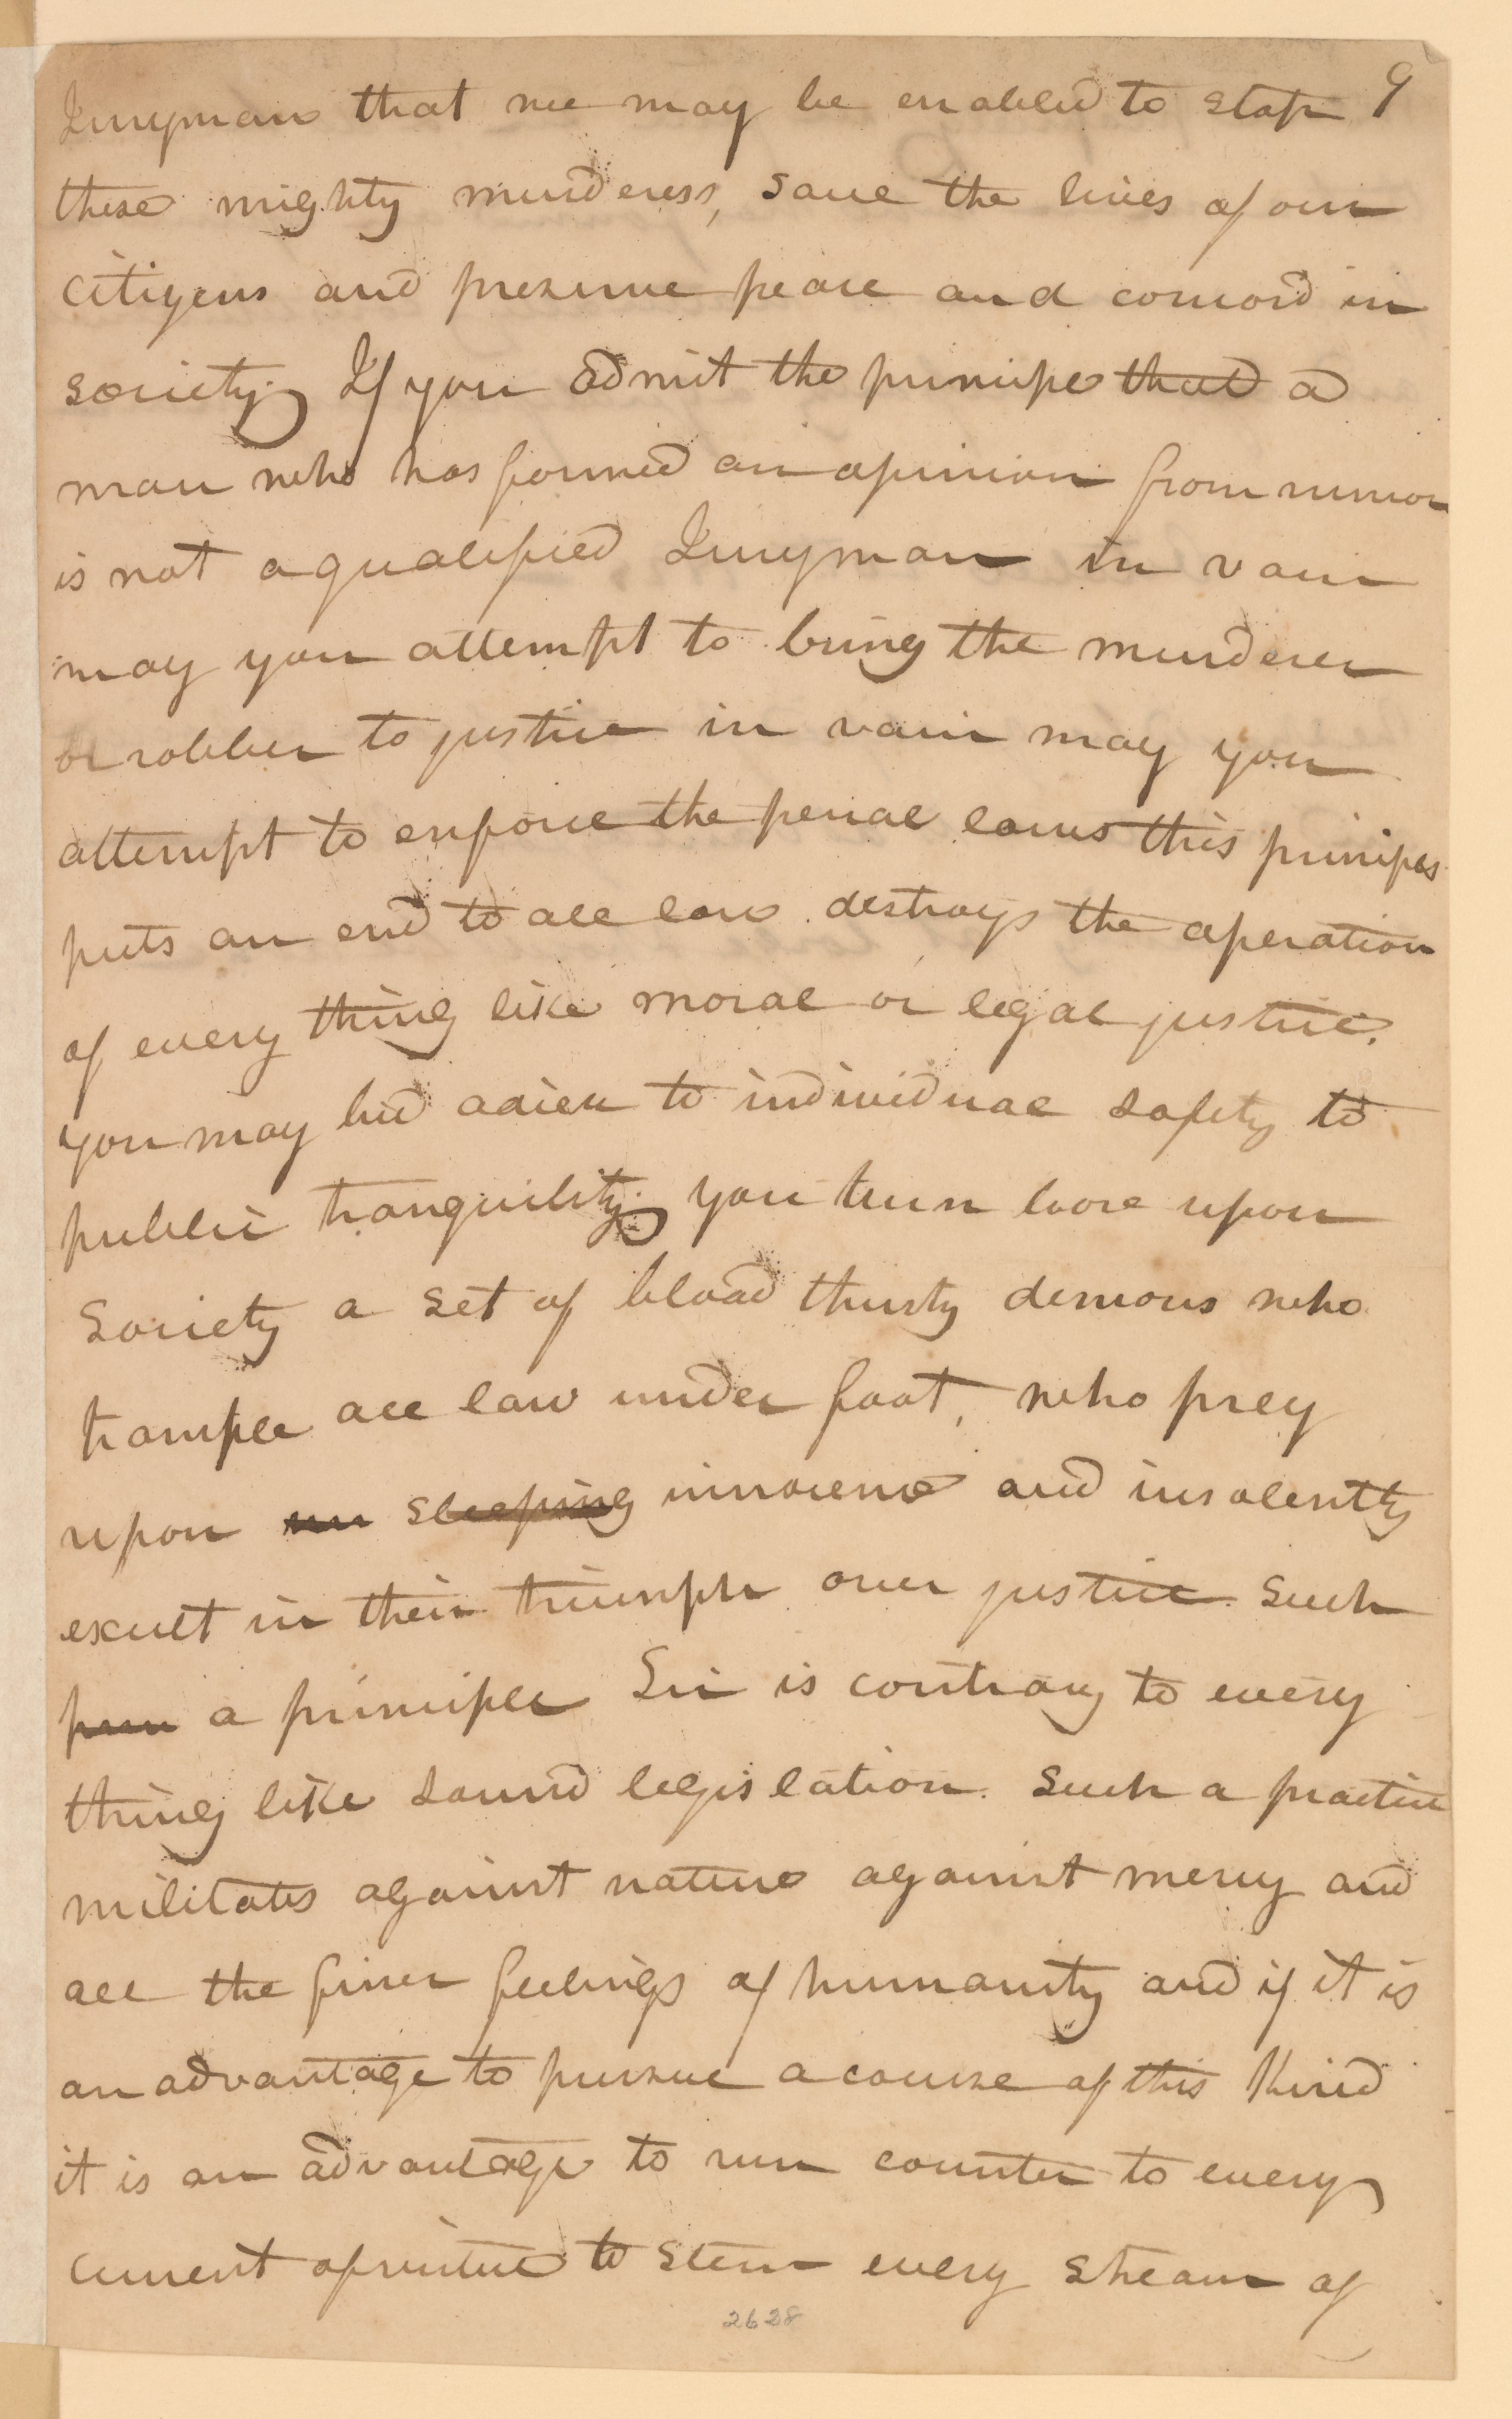 Juryman that we may be enabled to stop 9
these mighty murderers, save the lives of our
citizens and preserve peace and concord in
society. If you admit the principe that a
man who has formed an opinion from rumor
is not a qualified Juryman in vain
may you attempt to bring the murderer
or robber to justice in vain may you
attempt to enforce the penal laws this principle
puts an end to all law destroys the operation
of every thing like moral or legal justice.
you may bid adieu to individual safety to
public tranquility. you turn loose upon
Society a set of blood thirsty demons who
trample all law under foot, who prey
upon un sleeping innocence and insolently
exult in their triumph over justice. Such
prin a principle Sir is contrary to every
thing like sound legislation. Such a practice
militates against nature against mercy and
all the finer feelings of humanity and if it is
an advantage to pursue a course of this kind
it is an advantage to run counter to every
current of virtue to stem every stream of
2628